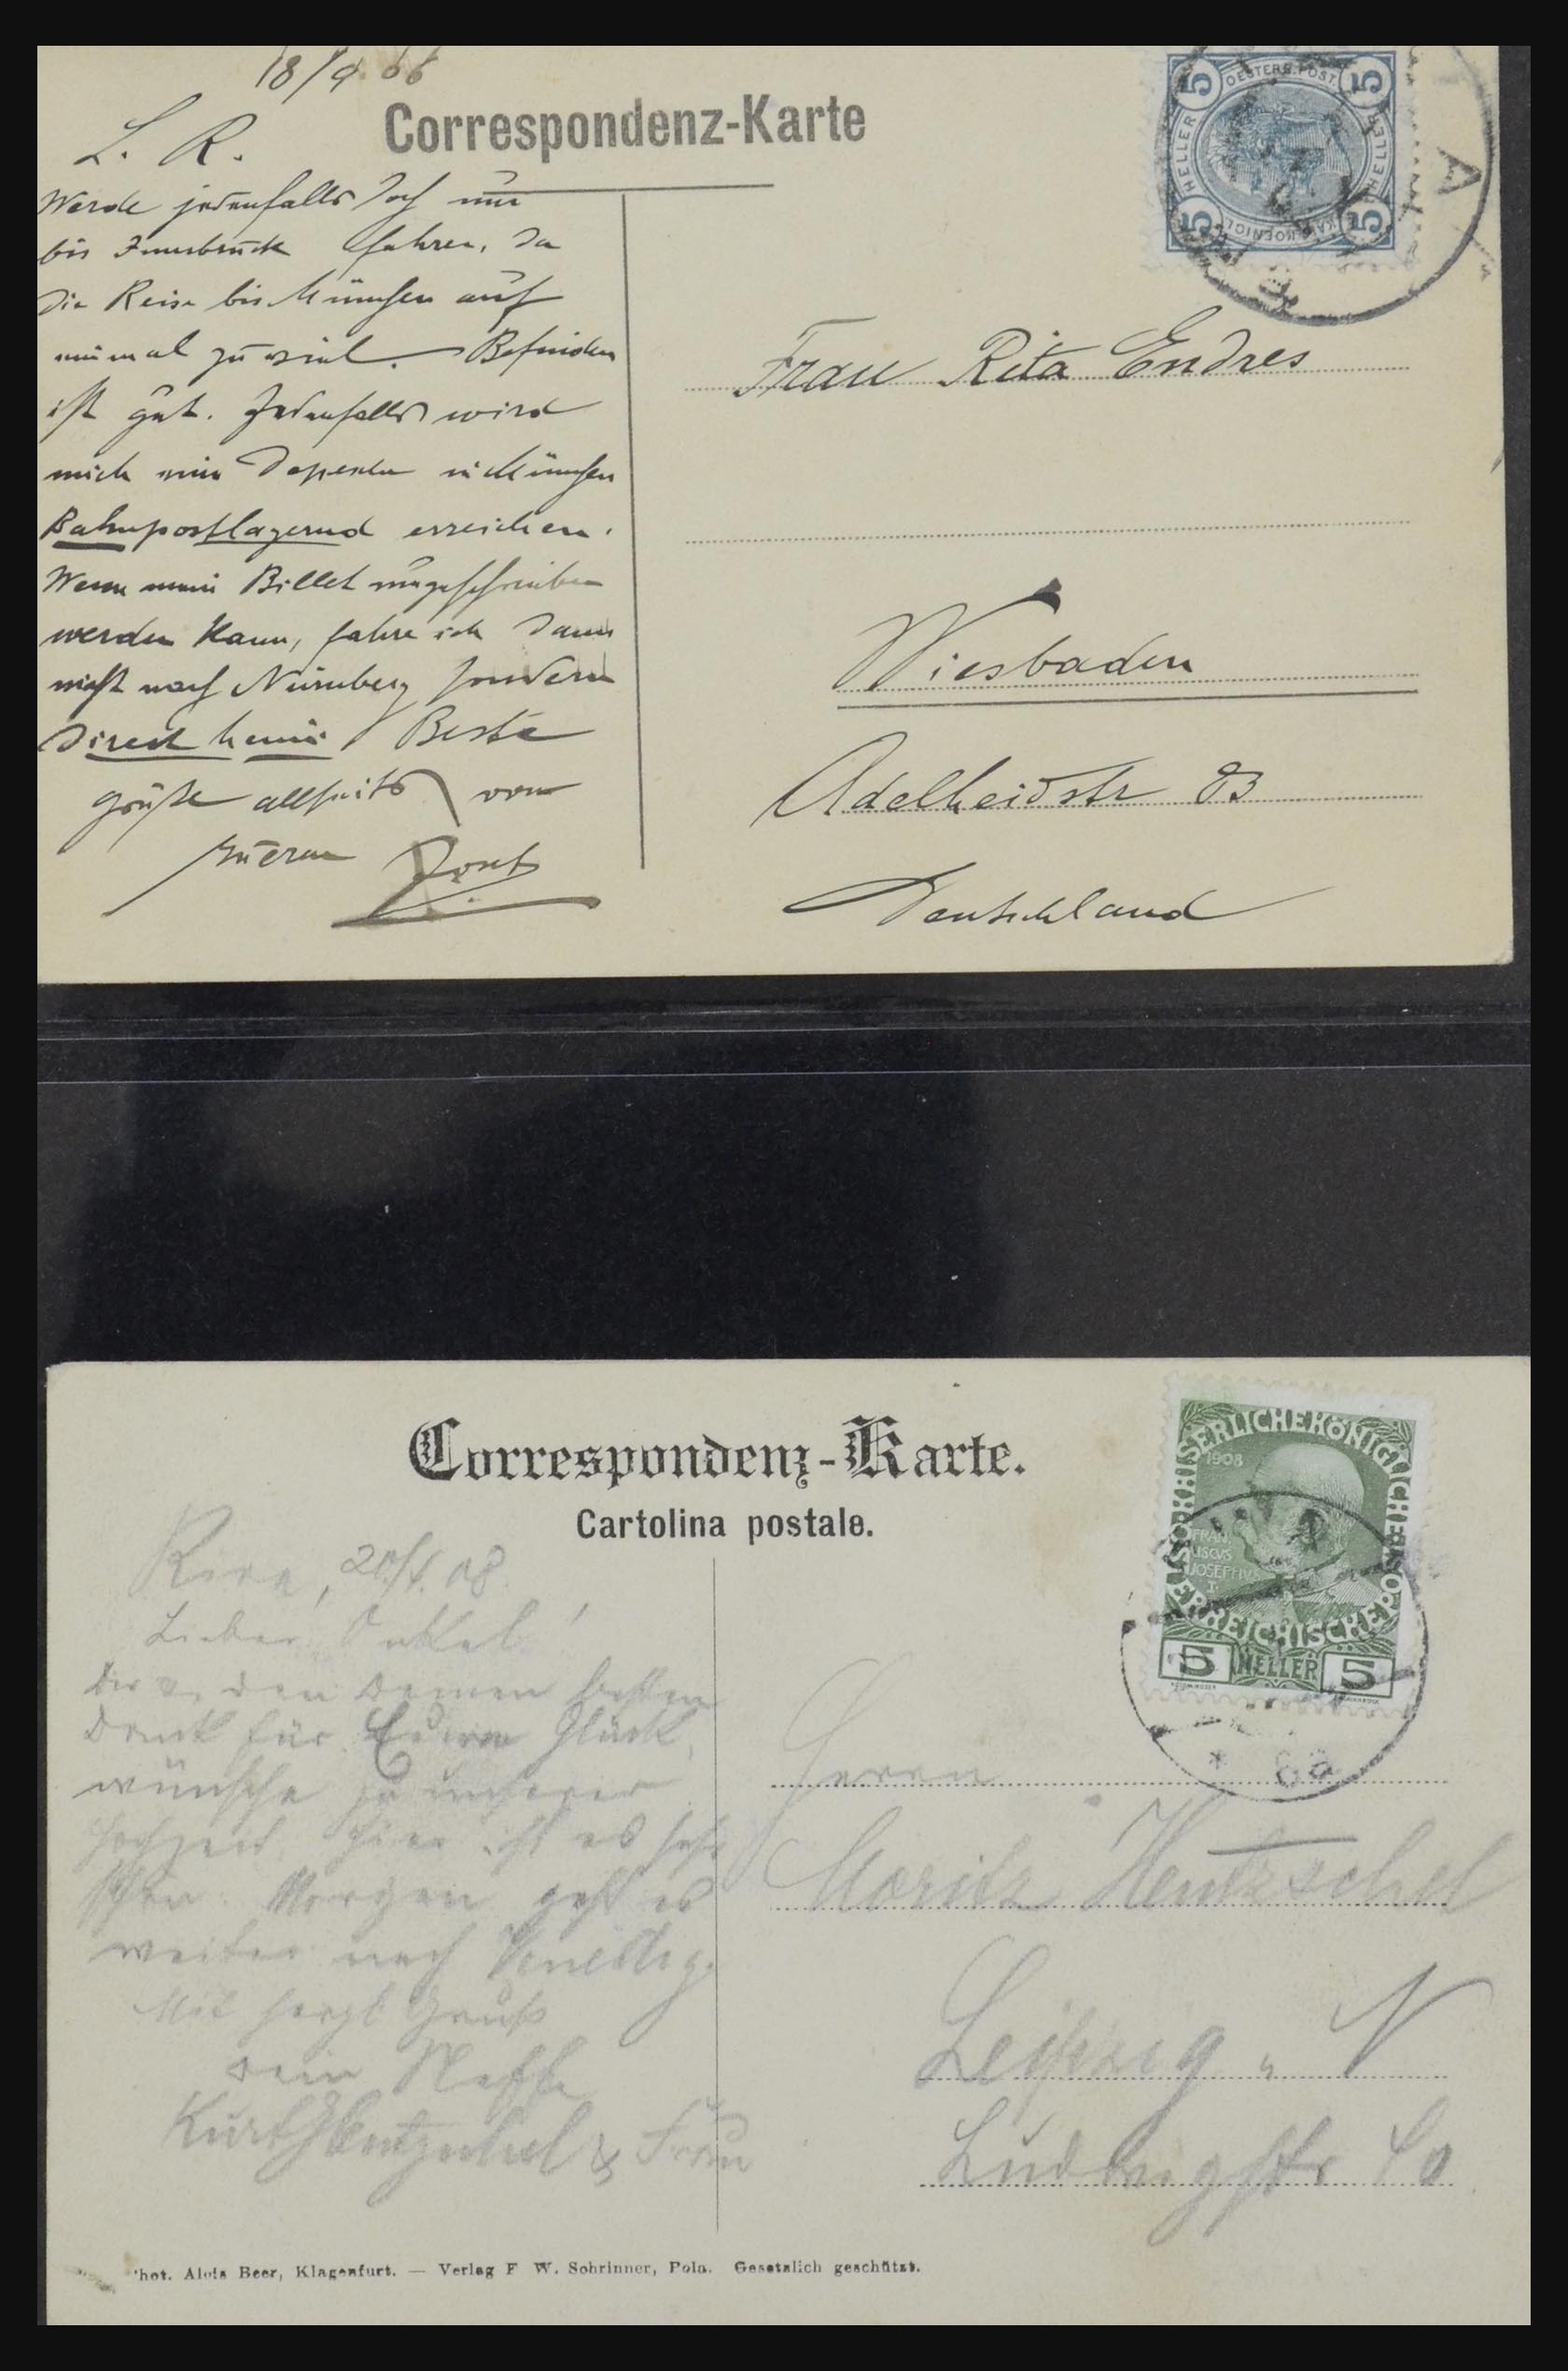 18/9. 06
Correspondenz-Karte
L. R.
Werde jedenfalls doch nur
bis Innsbruck fahren, da
die Reise bis München auf
einmal zu viel. Befinden
ist gut. Jedenfalls wird
mich eine Depesche in München
Bahnpostlagernd erreichen.
Wenn mein Billet umgeschrieben
werden kann, fahre ich dann
nicht nach Nürnberg sondern
direct heim. Beste
Grüße allseits von
Euerem
OESTERR. POST
5 HELLER 5 HELLER 5 5
KAIS. KOENIGL.
A
Frau Rita Endres
Wiesbaden
Adelheidstr 83
Deutschland
Correspondenz-Karte.
Cartolina postale.
Riva, 08.
Lieber Onkel!
Dir den besten
Dank für Euere Glück
wünsche zu unserer
Hochzeit. Hier ist es sehr
schön. Morgen geht es
weiter nach Venedig.
Mit herzl Gruß
dein Neffe
Kurt Hentzschel & Frau
KAISERLICHE KÖNIGLICHE
ÖSTERREICHISCHE POST
1908
FRANCISCUS JOSEPHUS I.
5 HELLER 5
* 6a
Herrn
Moritz Hentzschel
Leipzig, N
Ludwigstr
Phot. Alois Beer, Klagenfurt. — Verlag F. W. Schrinner, Pola. Gesetzlich geschützt.